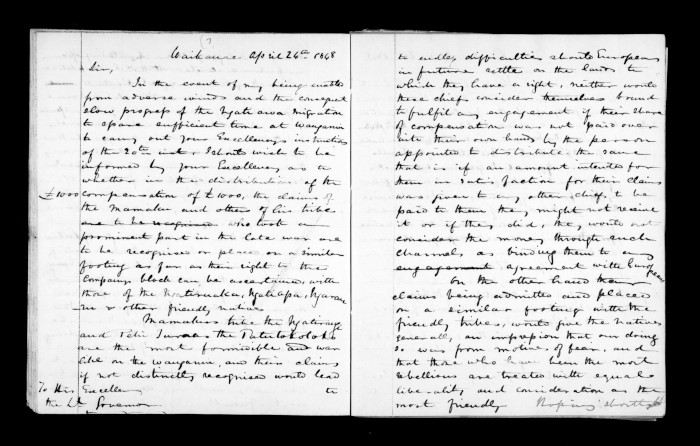 Waikanae April 26th 1848
Sir,
In the event of my being unable
from adverse winds and the consequent
slow progress of the Ngatiawa migration
to spare sufficient time at Wanganui
to carry out your Excellency's instructions
of the 20th inst I should wish to be
informed by your Excellency as to
whether in the distribution of the
£1000 compensation of £1000, the claims of
the Mamaku and others of his tribe
are to be recognised who took a
prominent part in the late war are
to be recognised or place on a similar
footing as far as their right to the
Companys block can be ascertained with
those of the
& other friendly natives
Mamakus tribe the
and the Patutokotoko
are the most formidable and war
like on the Wanganui, and their claims
if not distinctly recognised would lead
To His Excellency to
the Lt Governor
to endless difficulties should Europeans
in future settle on the lands to
which they have a right, neither would
these chiefs consider themselves bound
to fulfil any engagement if their share
of compensation was not paid over
into their own hands by the person
appointed to distribute the same
that is if an amount intended for
them in satisfaction for their claims
was given to any other chief, to be
paid to them they might not receive
it or if they did, they would not
consider the money through such
channel, as binding them to any
engagement agreement with Europeans
On the other hand their
claims being admitted and placed
on a similar footing with the
friendly tribes, would give the natives
generally an impression that our doing
so was from motives of fear, and
that those who have been the most
rebellious are treated with equal
liberality and consideration as the
most friendly Hoping shortly